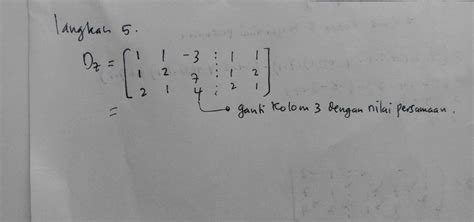 langkah 5.
Dz = [ 1 1 -3 : 1 1
1 2 7 : 1 2
2 1 4 : 2 1 ]
= ganti kolom 3 dengan nilai persamaan.